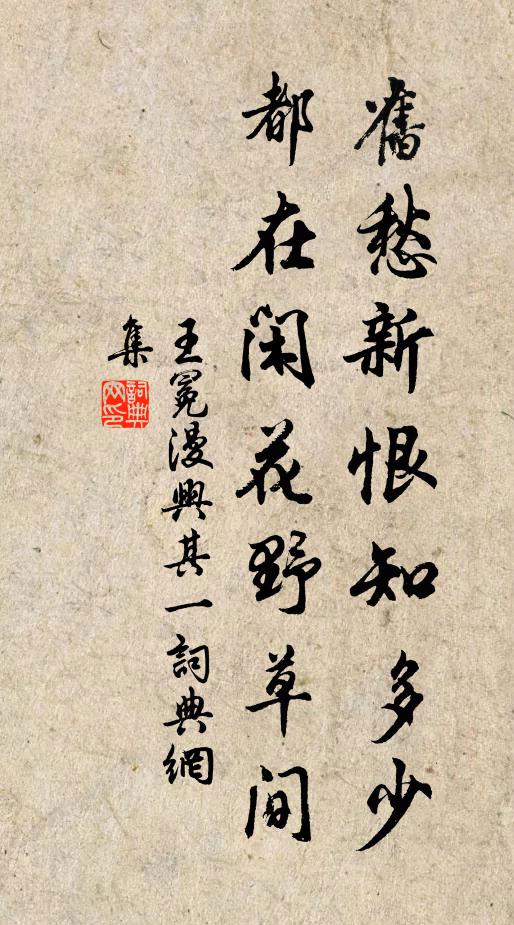 舊愁新恨知多少
都在閑花野草間
王冕漫興其一詞典網
集
詞典
网印